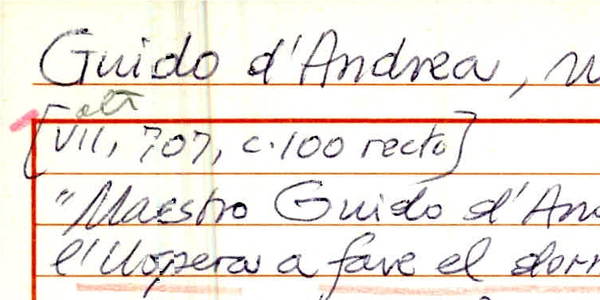 Guido d'Andrea,
[VII, 707, c. 100 recto]
"Maestro Guido d'An
l'Uopera a fare el dorm